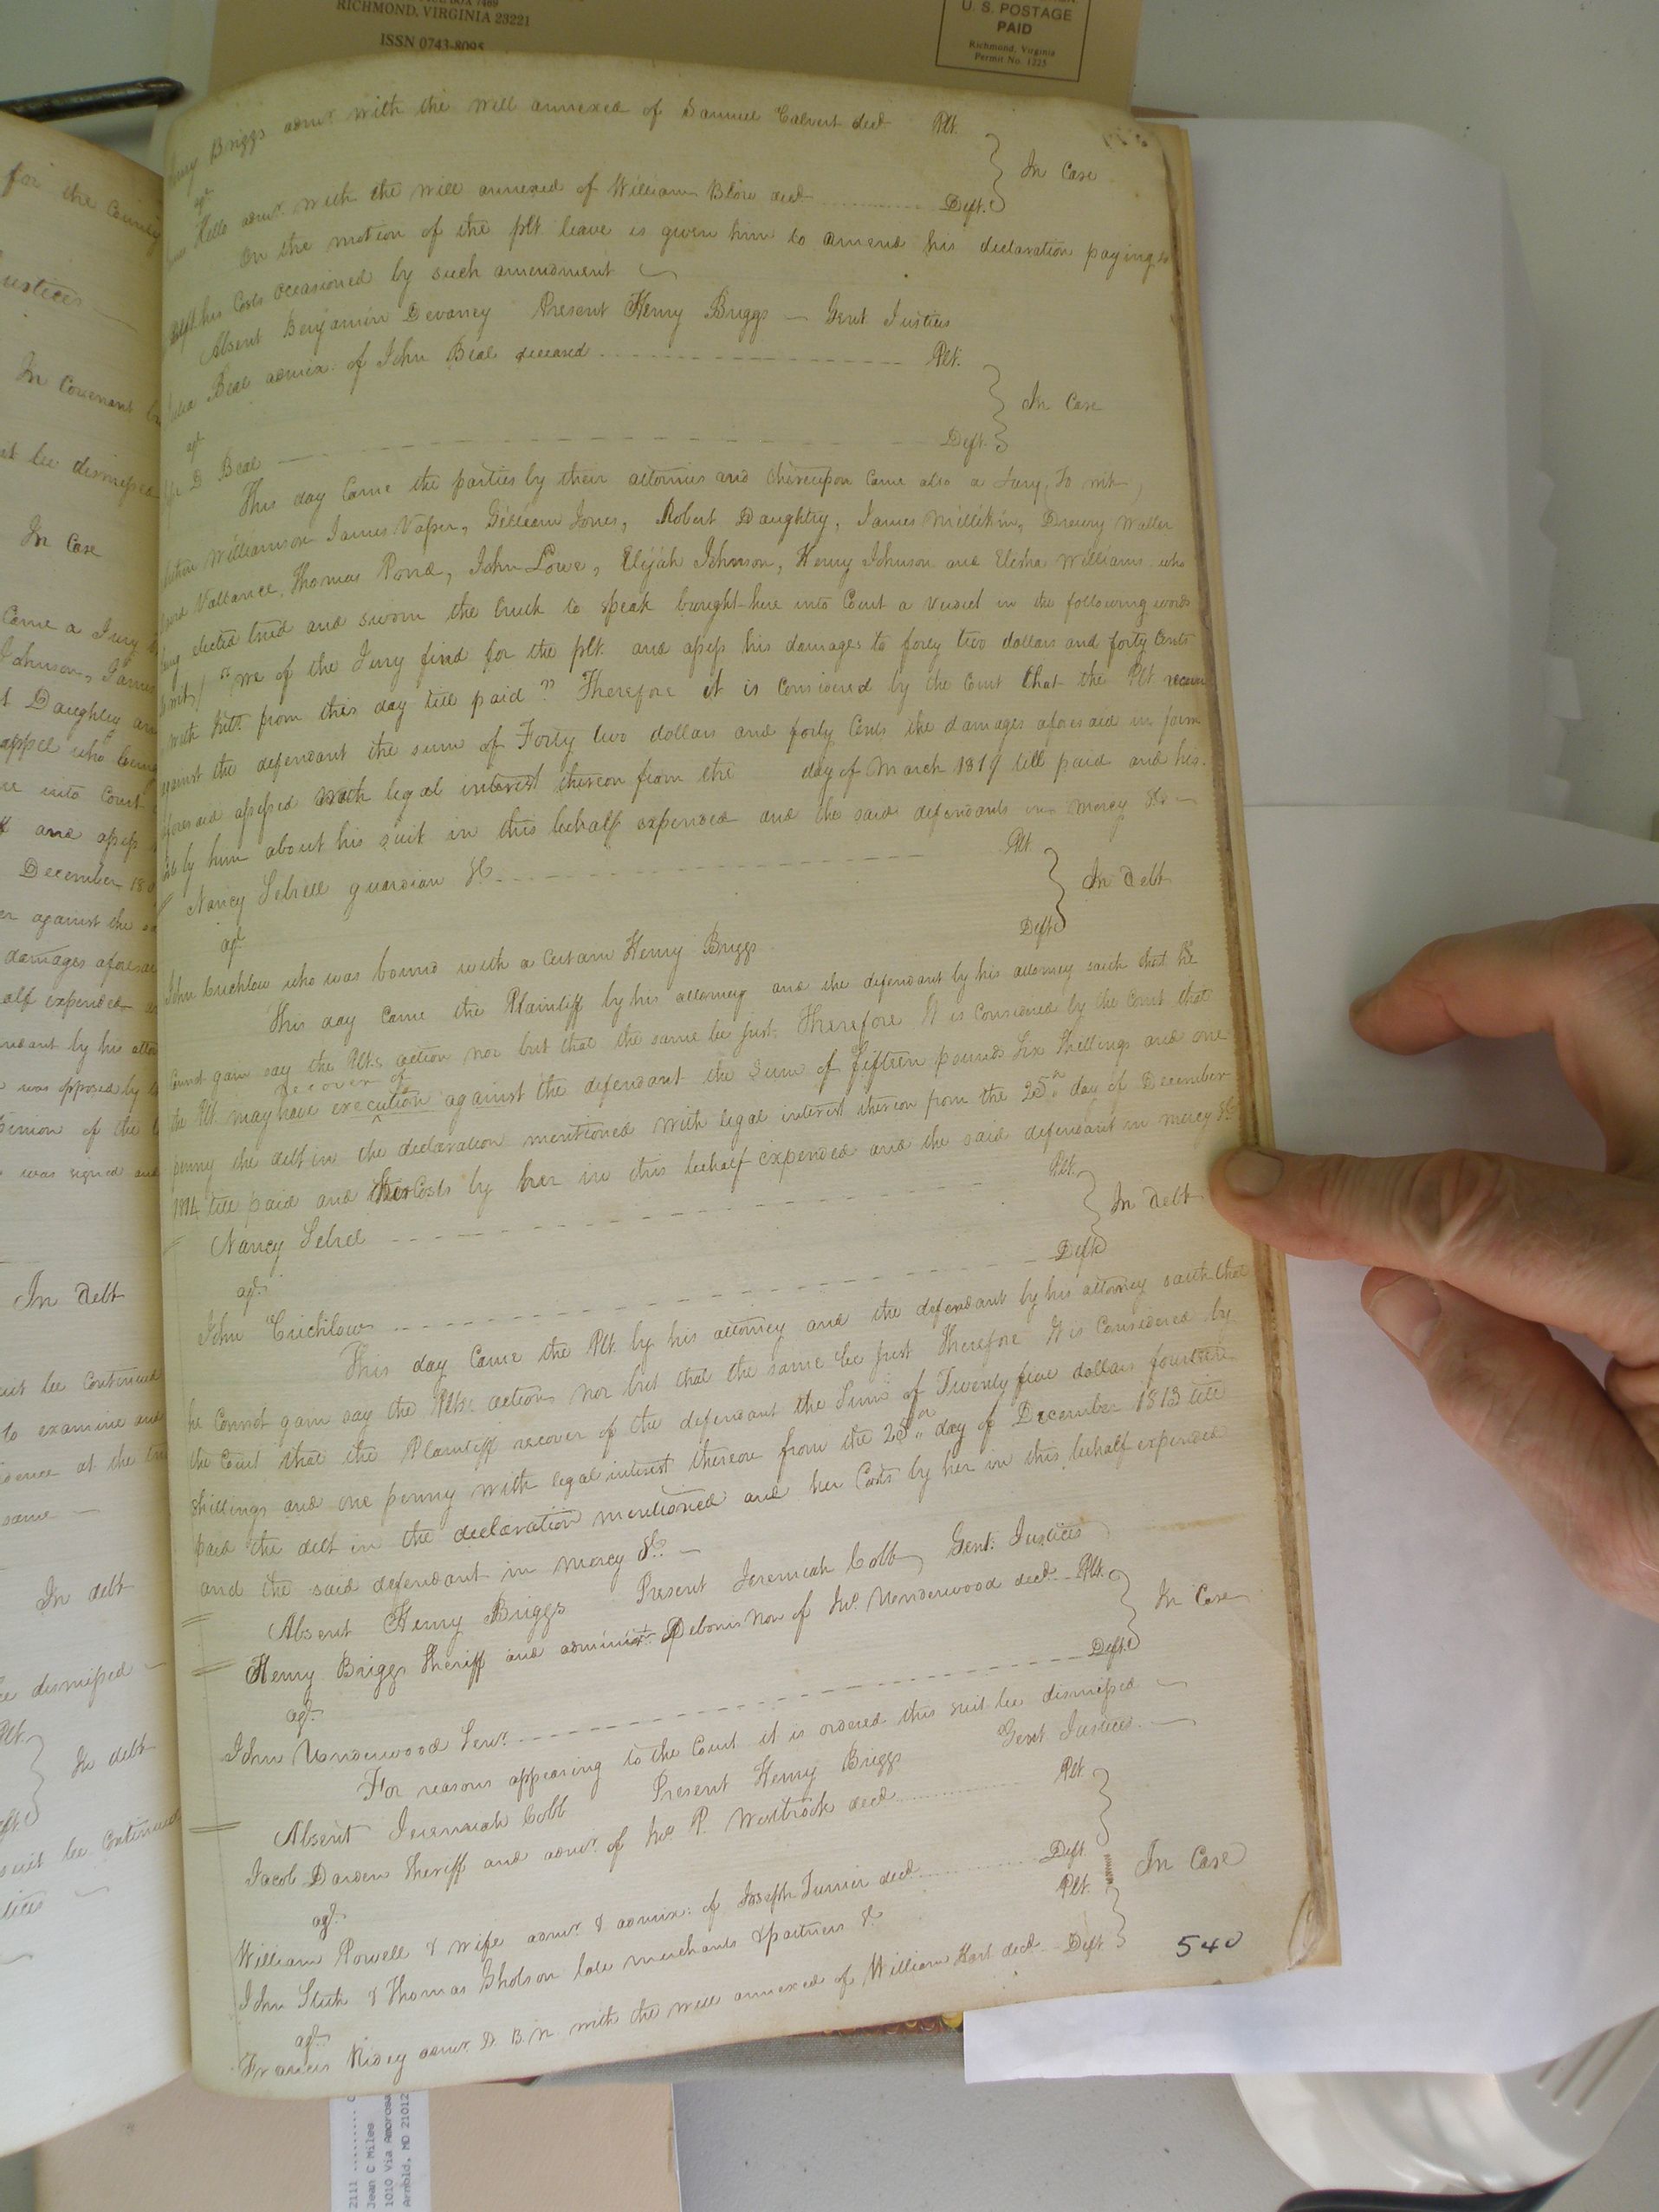 RICHMOND, VIRGINIA 23221
ISSN 0743-8095
U. S. POSTAGE
PAID
Richmond, Virginia
Permit No. 1225
for the County
Justices
In Covenant
be dismissed
In Case
Came a Jury
Johnson, James
Daughtry and
who being
into Court
and assess
December 18
against the
damages aforesaid
expended
by his
was opposed by
opinion of the
was signed and
In debt
be Continued
to examine and
at the
same
In debt
dismissed
Plt.
In debt
suit be Continued
Briggs admr. with the will annexed of Samuel Calvert decd Plt.
agt. In Case
admr. with the will annexed of William Blow decd Deft.
On the motion of the plt. leave is given him to amend his declaration paying
his Costs occasioned by such amendment
Absent Benjamin Devaney Present Henry Briggs — Gent. Justices
Beal admix: of John Beal deceased Plt.
agt. In Case
D Beal Deft.
This day Came the parties by their attornies and thereupon Came also a Jury, To wit,
Williamson James Vasser, Gilliam Jones, Robert Daughtry, James Millikin, Drewry Waller
Vallance, Thomas Pond, John Lowe, Elijah Johnson, Henry Johnson and Elisha Williams who
being elected tried and sworn the truth to speak brought here into Court a Verdict in the following words
to wit, "we of the Jury find for the plt. and assess his damages to forty two dollars and forty Cents
with Intt. from this day till paid" Therefore it is Considered by the Court that the Plt recover
against the defendant the sum of Forty two dollars and forty Cents the damages aforesaid in form
aforesaid assessed with legal interest thereon from the day of March 1819 till paid and his
Costs by him about his suit in this behalf expended and the said defendants in mercy &c —
Nancy Sebrell guardian &c. Plt.
agt. In debt
John Crichlow who was bound with a Certain Henry Briggs Deft.
This day Came the Plaintiff by his attorney and the defendant by his attorney saith that he
Cannot gain say the Plts. action nor but that the same be just. Therefore It is Considered by the Court that
recover of
the Plt. may have execution against the defendant the Sum of fifteen pounds Six Shillings and one
penny the debt in the declaration mentioned with legal interest thereon from the 25th day of December
1814 till paid and her Costs by her in this behalf expended and the said defendant in mercy &c
Nancy Sebrel Plt.
agt. In debt
John Crichlow Deft.
This day Came the Plt. by his attorney and the defendant by his attorney saith that
he Cannot gain say the Plts. action nor but that the same be just Therefore It is Considered by
the Court that the Plaintiff recover of the defendant the Sum of Twenty five dollars fourteen
Shillings and one penny with legal interest thereon from the 25th day of December 1813 till
paid the debt in the declaration mentioned and her Costs by her in this behalf expended
and the said defendant in mercy &c. —
Absent Henry Briggs Present Jeremiah Cobb Gent. Justices
Henry Briggs Sheriff and administ. Debonis Non of Jno. Vonderwood decd. Plt.
agt. In Case
John Vonderwood Senr. Deft.
For reasons appearing to the Court it is ordered this suit be dismissed —
Absent Jeremiah Cobb Present Henry Briggs Gent Justices. —
Jacob Darden Sheriff and admr. of Jno. P. Westbrook decd. Plt.
agt.
William Powell & wife admr. & admix: of Joseph Turner decd. Deft.
In Case
John Stith & Thomas Gholson late merchants & partners &c. Plt.
agt.
Francis Ridley admr. D. B. N. with the will annexed of William Hart decd Deft
540
2111
Jean C Miles
1010 Via Amorosa
Arnold, MD 21012